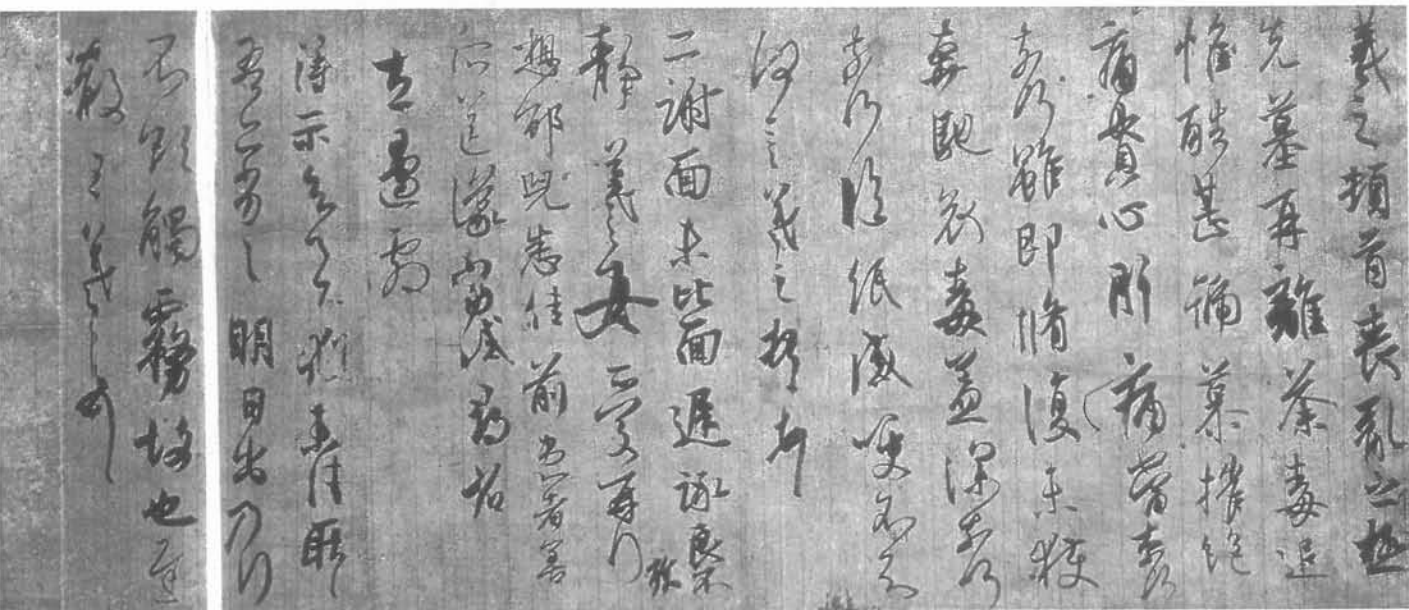 羲之頓首喪亂之極
先墓再離荼毒追
惟酷甚號慕摧絶
痛貫心肝痛當奈何
奈何雖即脩復未獲
奔馳哀毒益深奈何
奈何臨紙感哽不知
何言羲之頓首頓首
二謝面未比面遲詠良不
靜羲之女愛再拜
想邵兒悉佳前患者善
所送議當試尋
左邊劇
得示知足下猶未佳耿耿
吾亦劣劣明日出乃行
不欲觸霧故也遲
散王羲之頓首